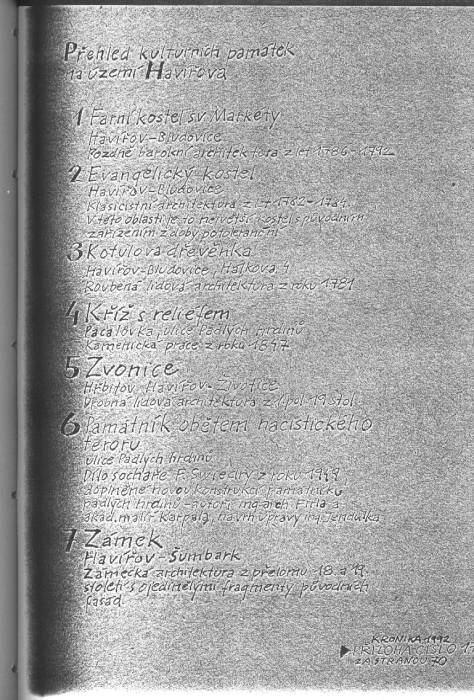 Přehled kulturních památek
na území Havířova
1 Farní kostel sv. Markéty
Havířov-Bludovice
Pozdně barokní architektura z let 1786-1792
2 Evangelický kostel
Havířov-Bludovice
Klasicistní architektura z let 1782-1784.
V této oblasti je to největší kostel s původním
zařízením z doby potoleranční
3 Kotulova dřevěnka
Havířov-Bludovice, Hálkova 4
Roubená lidová architektura z roku 1781
4 Kříž s reliéfem
Pacalovka, ulice Padlých hrdinů
Kamenická práce z roku 1847
5 Zvonice
Hřbitov Havířov-Životice
Drobná lidová architektura z 1. pol. 19. stol.
6 Památník obětem nacistického
teroru
ulice Padlých hrdinů
Dílo sochaře F. Świedra z roku 1949
doplněné novou konstrukcí památníku
padlých hrdinů-autoři ing. arch. Firla a
akad. malíř Karpala, návrh úpravy ing. Jendulka
7 Zámek
Havířov-Šumbark
Zámecká architektura z přelomu 18. a 19.
století s ojedinělými fragmenty původních
fasád
KRONIKA 1992
PŘÍLOHA ČÍSLO
ZA STRANOU 70